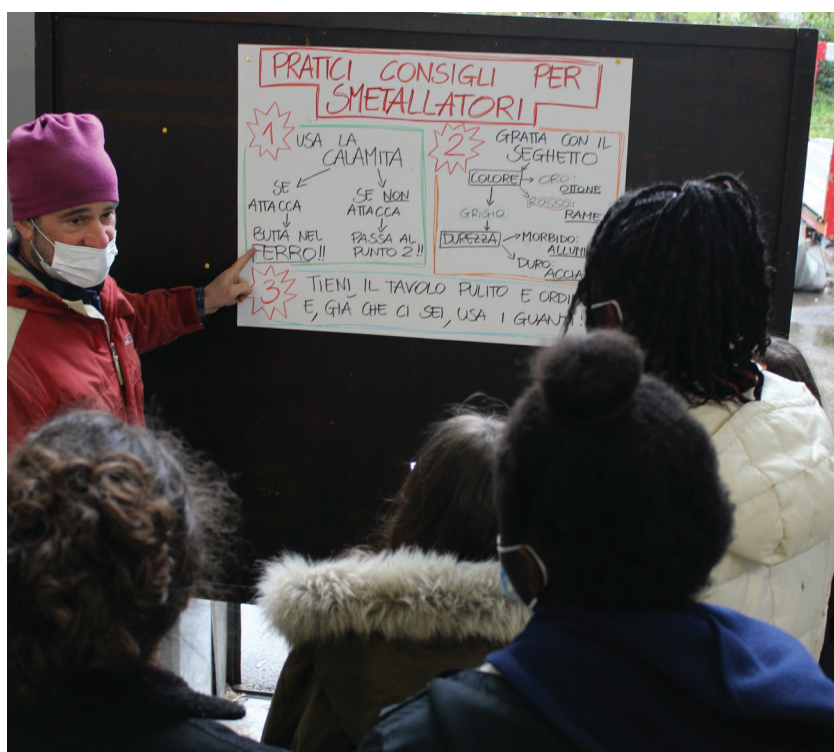 PRATICI CONSIGLI PER
SMETALLATORI
1
USA LA
CALAMITA
SE
ATTACCA
BUTTA NEL
FERRO!!
SE NON
ATTACCA
PASSA AL
PUNTO 2!!
2
GRATTA CON IL
SEGHETTO
COLORE
ORO:
OTTONE
ROSSO:
RAME
GRIGIO
DUREZZA
MORBIDO:
ALLUMI
DURO:
ACCIA
3
TIENI IL TAVOLO PULITO E ORDI
E, GIÀ CHE CI SEI, USA I GUANTI!